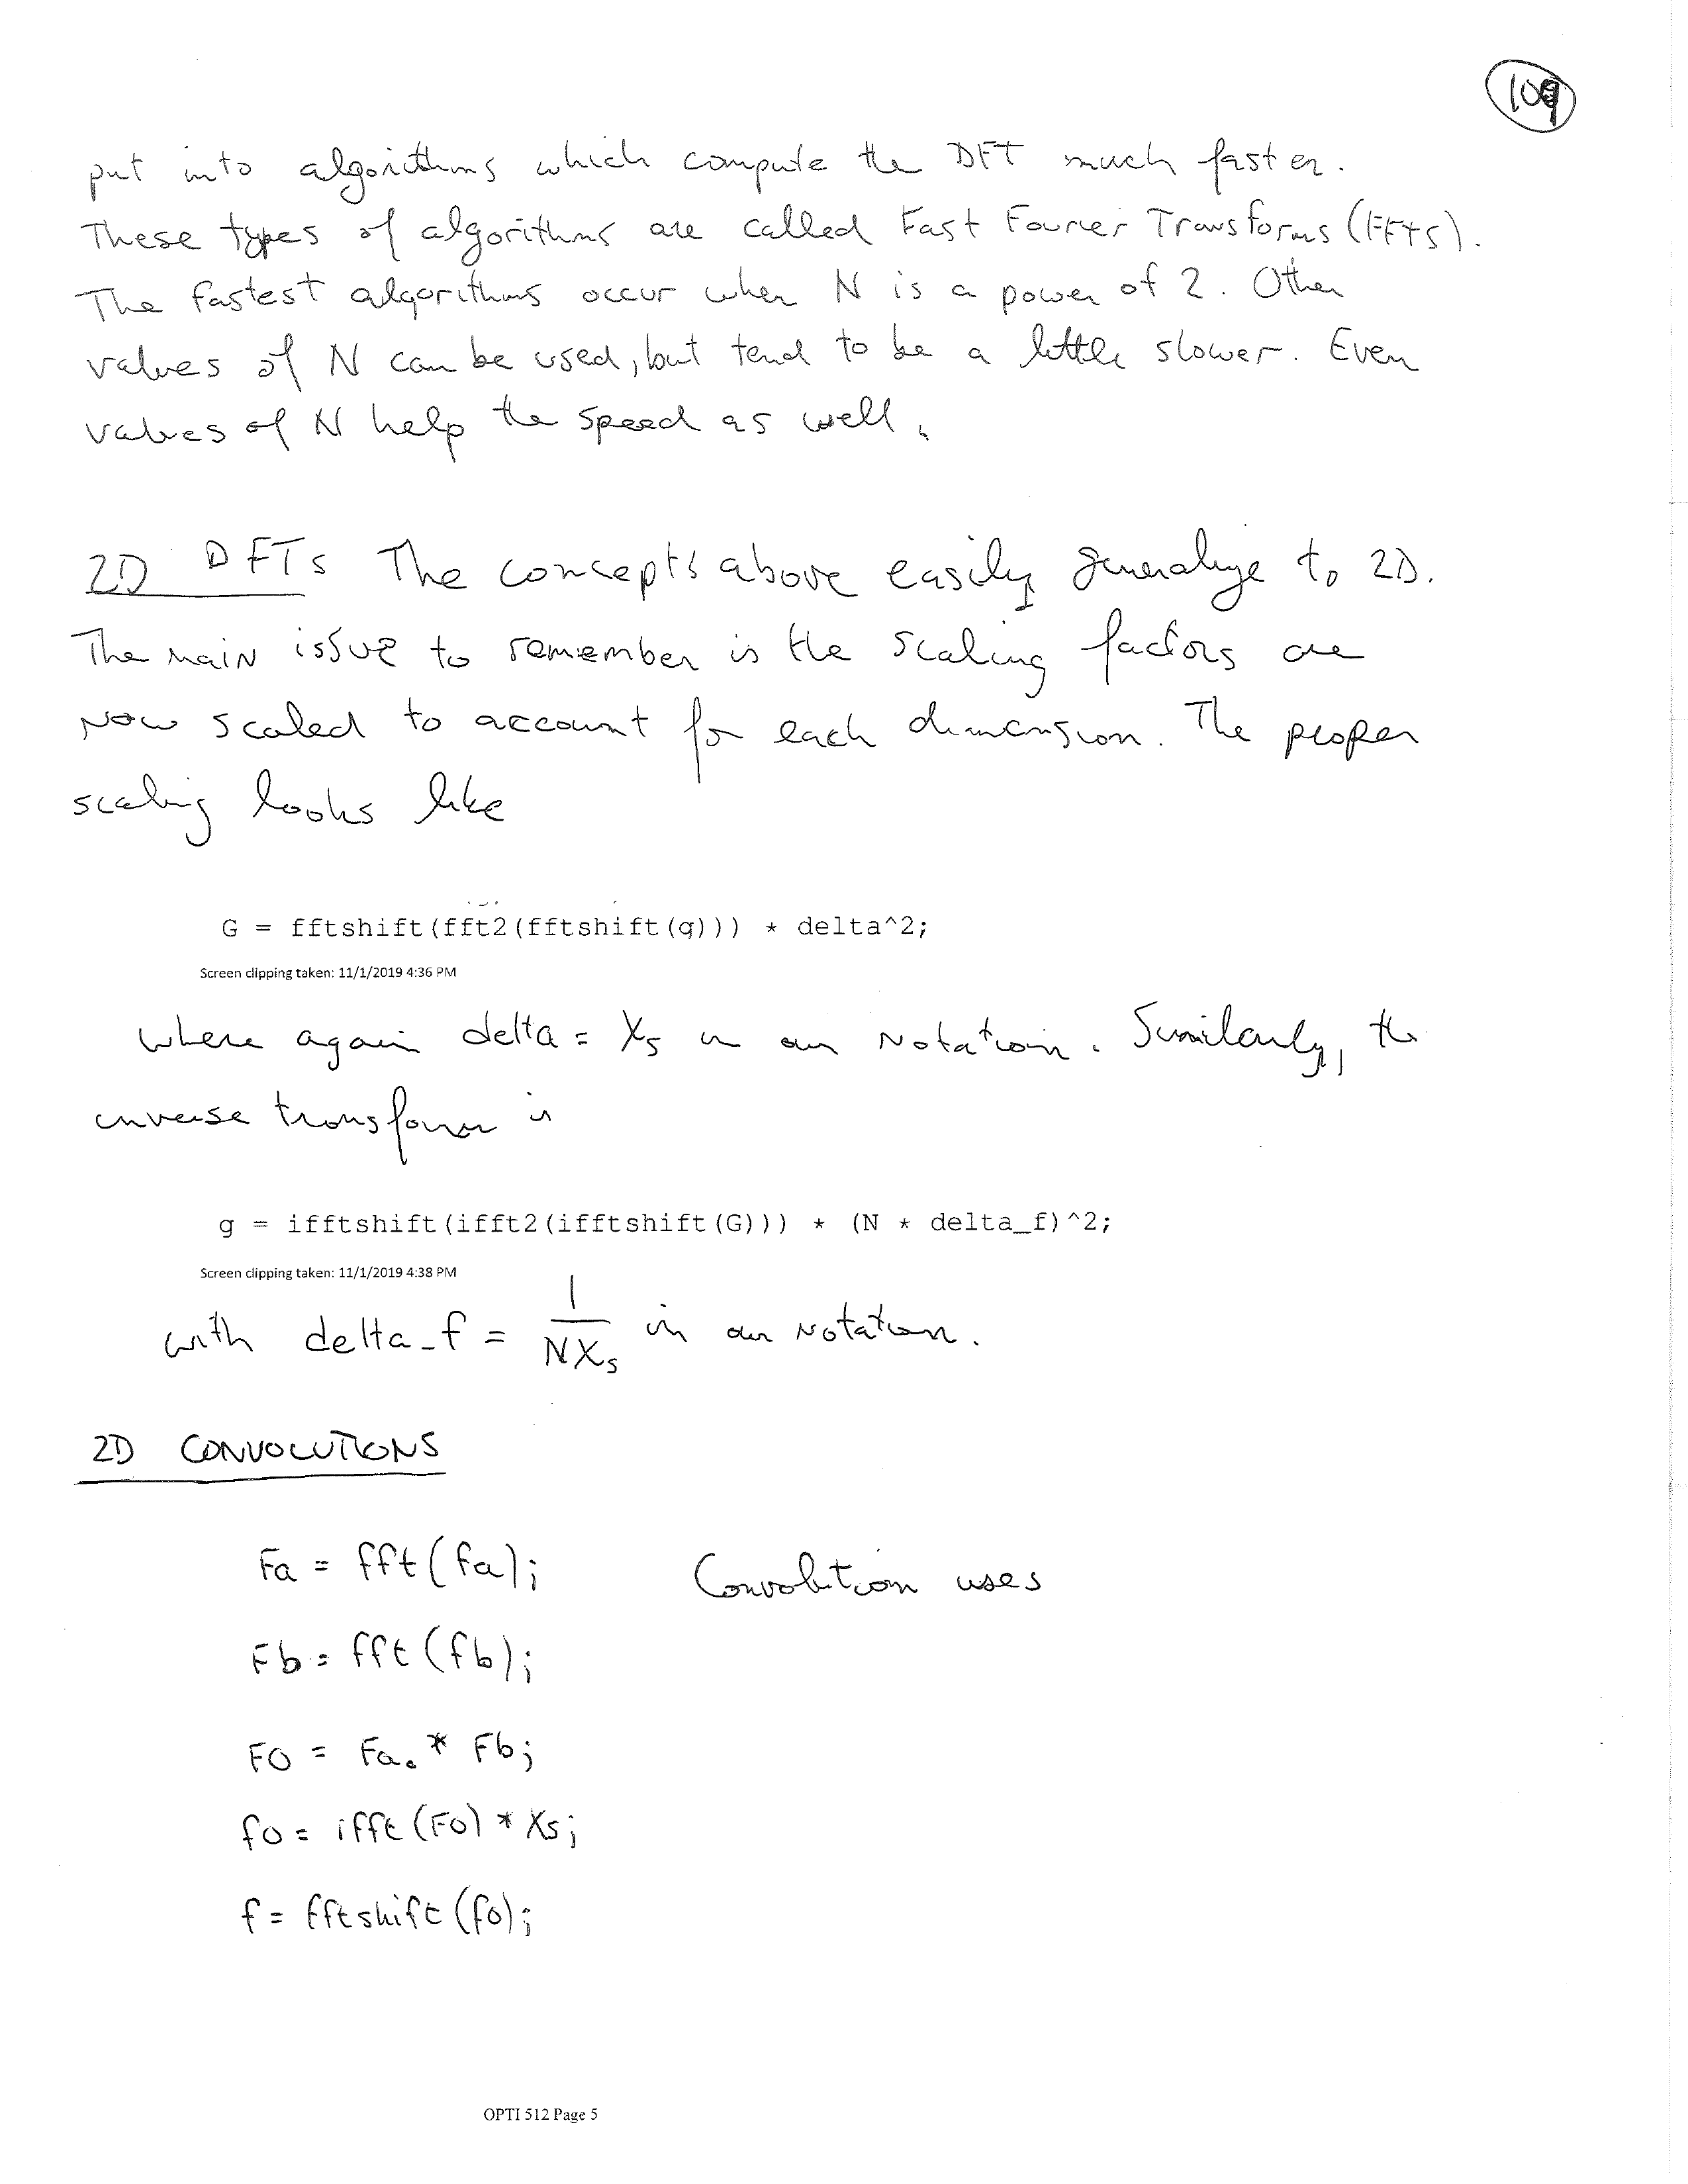 109
put into algorithms which compute the DFT much faster.
These types of algorithms are called Fast Fourier Transforms (FFTs).
The fastest algorithms occur when N is a power of 2. Other
values of N can be used, but tend to be a little slower. Even
values of N help the speed as well.
2D DFTs The concepts above easily generalize to 2D.
The main issue to remember is the scaling factors are
now scaled to account for each dimension. The proper
scaling looks like
G = fftshift(fft2(fftshift(g))) * delta^2;
Screen clipping taken: 11/1/2019 4:36 PM
where again delta = Xs in our notation. Similarly, the
inverse transform is
g = ifftshift(ifft2(ifftshift(G))) * (N * delta_f)^2;
Screen clipping taken: 11/1/2019 4:38 PM
with delta_f = 1/NXs in our notation.
2D CONVOLUTIONS
Fa = fft(fa); Convolution uses
Fb = fft(fb);
FO = Fa.* Fb;
fo = ifft(FO) * Xs;
f = fftshift(fo);
OPTI 512 Page 5